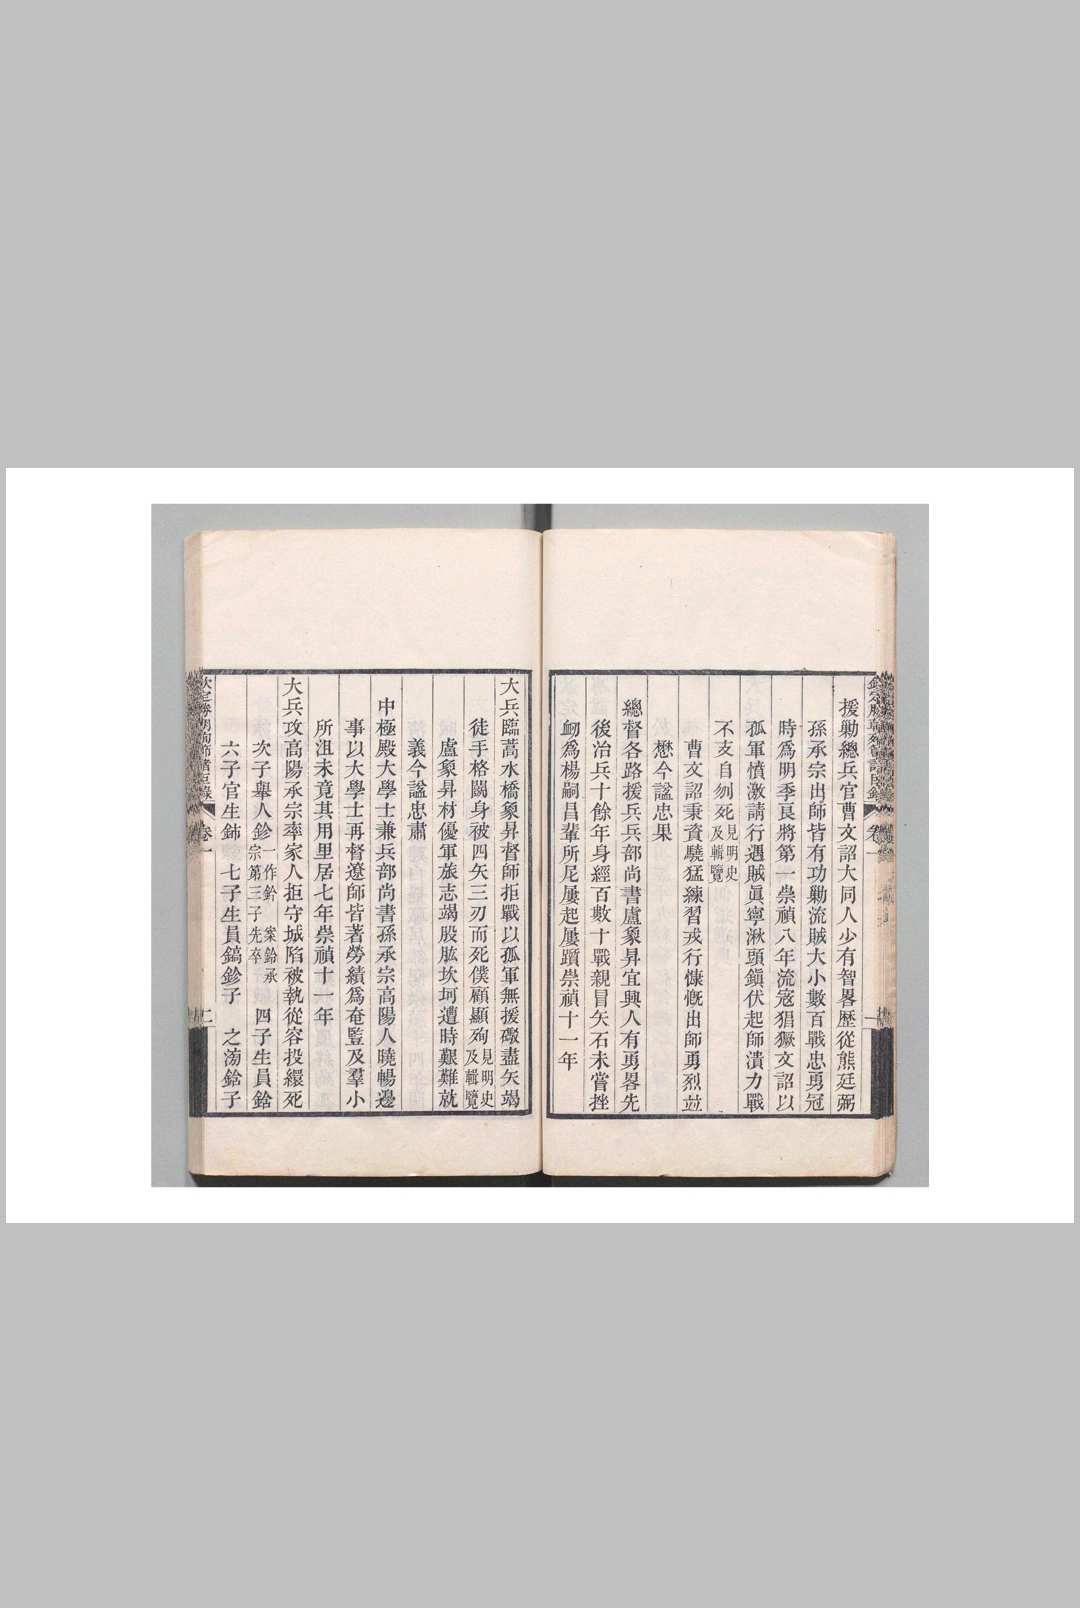 援勦總兵官曹文詔大同人少有智畧歴從熊廷弼
孫承宗出師皆有功勦流賊大小數百戰忠勇冠
時爲明季良將第一崇禎八年流寇猖獗文詔以
孤軍憤激請行遇賊眞寧湫頭鎭伏起師潰力戰
不支自刎死見明史及輯覽
曹文詔秉資驍猛練習戎行慷慨出師勇烈竝
懋今諡忠果
總督各路援兵兵部尚書盧象昇宜興人有勇畧先
後治兵十餘年身經百數十戰親冒矢石未嘗挫
衂爲楊嗣昌輩所尼屢起屢躓崇禎十一年
大兵臨蒿水橋象昇督師拒戰以孤軍無援礮盡矢竭
徒手格鬭身被四矢三刃而死僕顧顯殉見明史及輯覽
盧象昇材優軍旅志竭股肱坎坷遭時艱難就
義今諡忠肅
中極殿大學士兼兵部尚書孫承宗高陽人曉暢邊
事以大學士再督遼師皆著勞績爲奄豎及羣小
所沮未竟其用里居七年崇禎十一年
大兵攻高陽承宗率家人拒守城陷被執從容投繯死
次子舉人鉁一作鈐 案鉁承宗第三子先卒四子生員鋡
六子官生鈰 七子生員鎬鉁子 之澇鋡子
欽定勝朝殉節諸臣錄 卷一 二